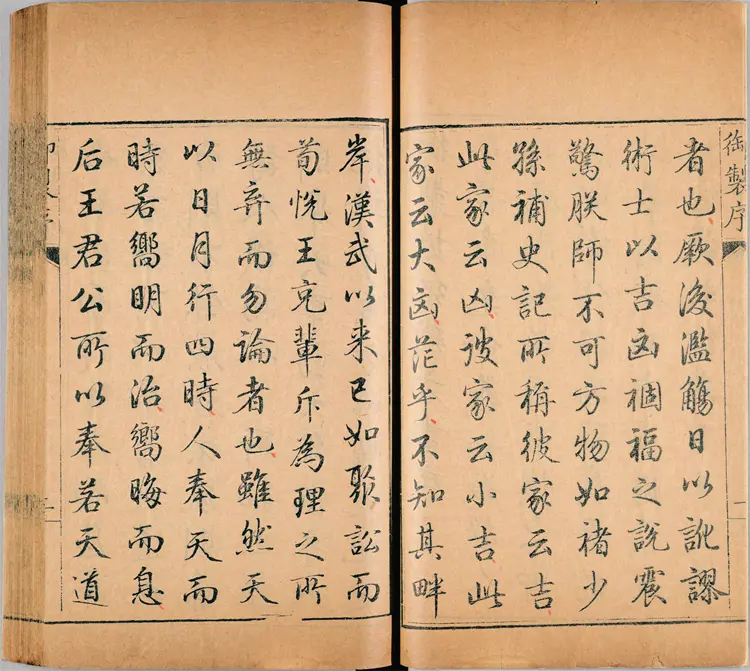 御製序
者也厥後濫觴日以訛謬
術士以吉凶禍福之說震
驚朕師不可方物如褚少
孫補史記所稱彼家云吉
此家云凶彼家云小吉此
家云大凶茫乎不知其畔
岸漢武以来已如聚訟而
荀悅王充輩斥為理之所
無弃而勿論者也雖然天
以日月行四時人奉天而
時若嚮明而治嚮晦而息
后王君公所以奉若天道